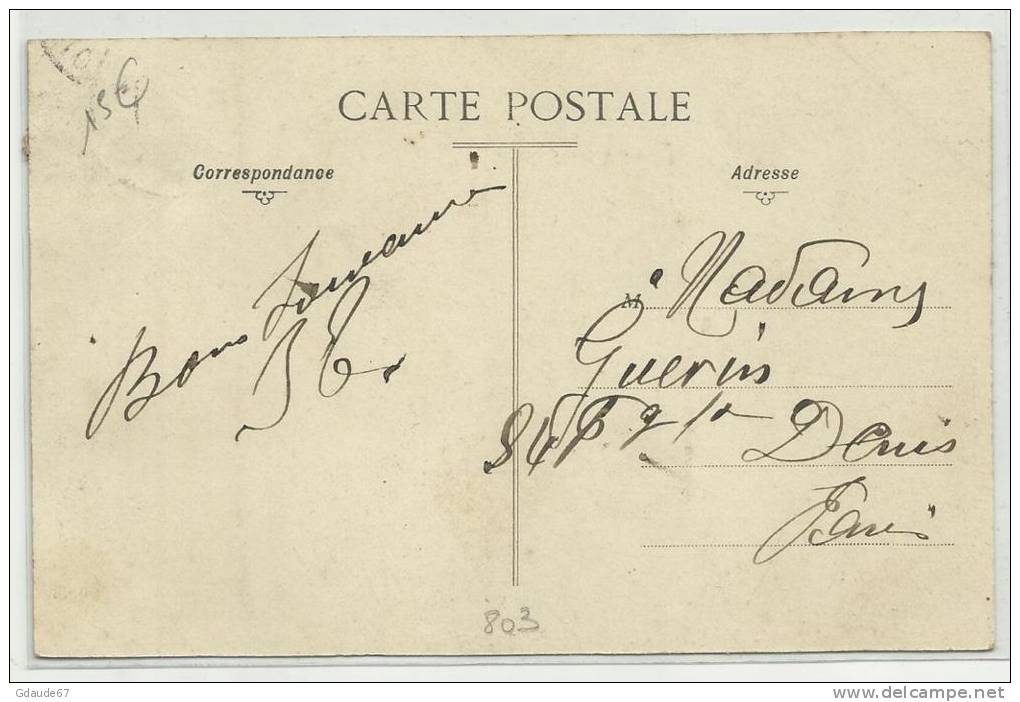 15€
CARTE POSTALE
Correspondance
Adresse
Bons
M
Madame
Guerin
84 F g St Denis
Paris
803
Gdaude67
www.delcampe.net